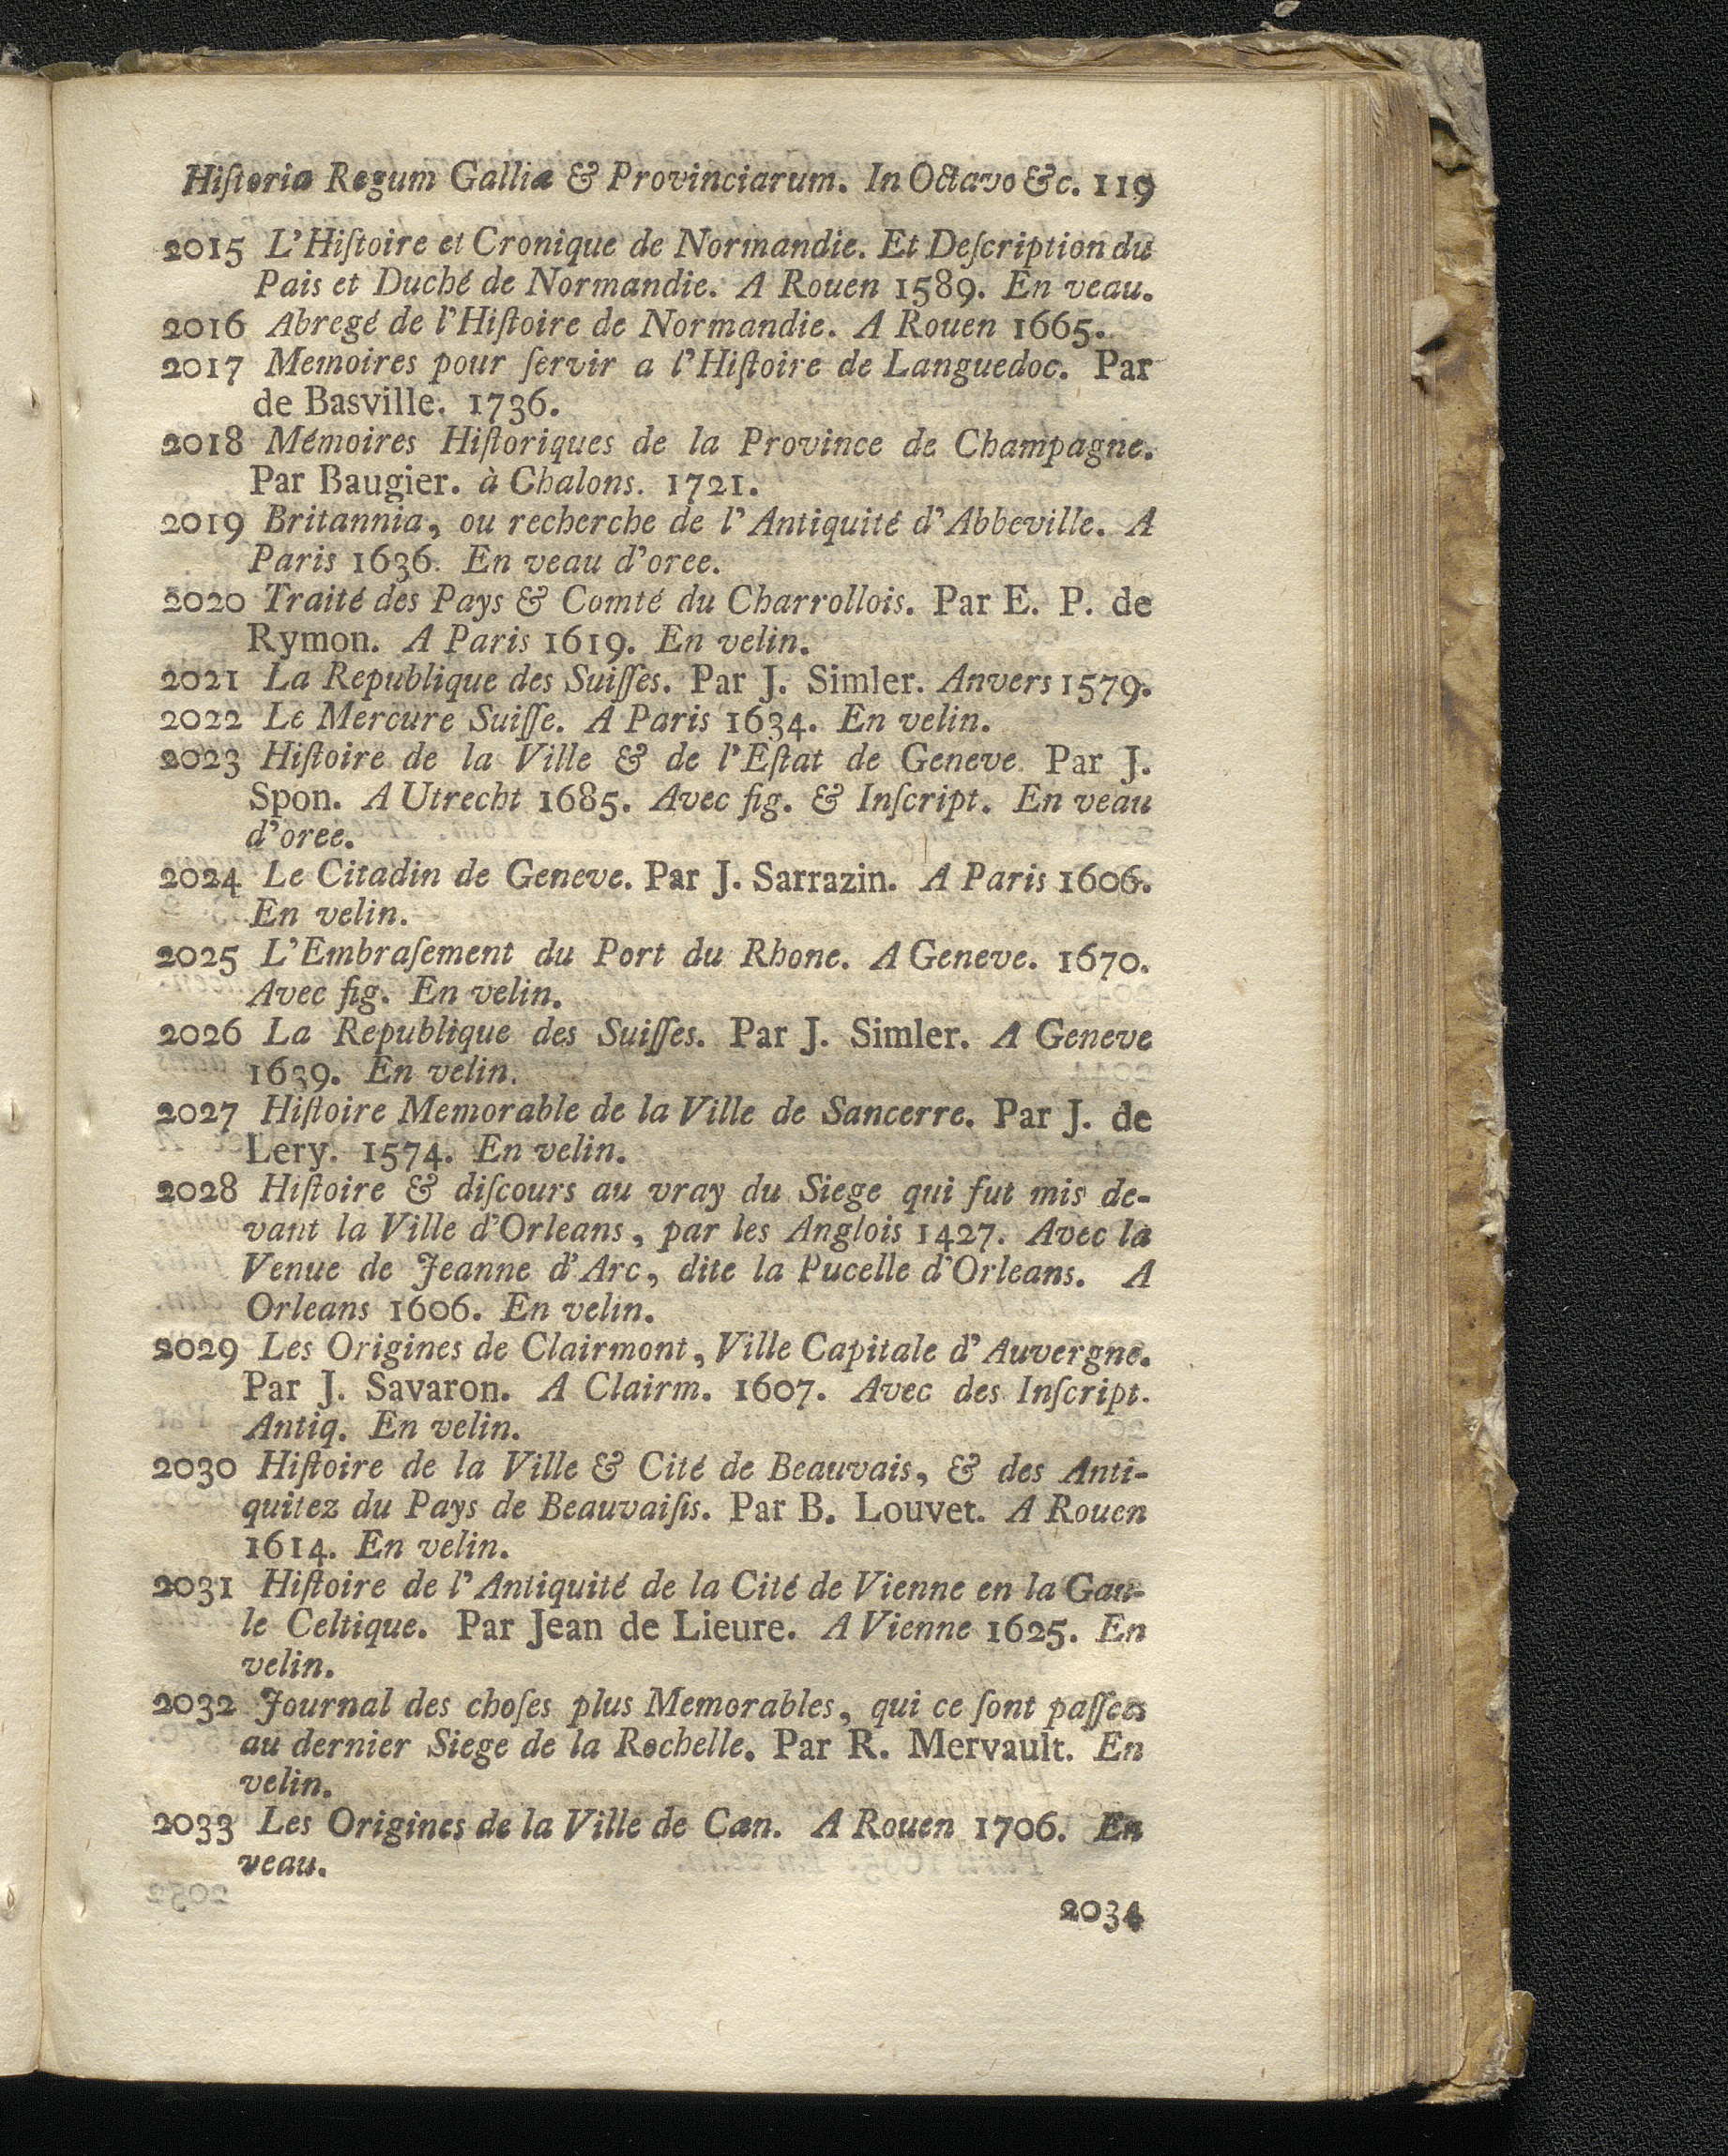 Hiſtoria Regum Galliæ & Provinciarum. In Octavo &c. 119
2015 L'Hiſtoire et Cronique de Normandie. Et Deſcription du
Pais et Duché de Normandie. A Rouen 1589. En veau.
2016 Abregé de l'Hiſtoire de Normandie. A Rouen 1665.
2017 Memoires pour ſervir a l'Hiſtoire de Languedoc. Par
de Basville. 1736.
2018 Mémoires Hiſtoriques de la Province de Champagne.
Par Baugier. à Chalons. 1721.
2019 Britannia, ou recherche de l'Antiquité d'Abbeville. A
Paris 1636. En veau d'oree.
2020 Traité des Pays & Comté du Charrollois. Par E. P. de
Rymon. A Paris 1619. En velin.
2021 La Republique des Suiſſes. Par J. Simler. Anvers 1579.
2022 Le Mercure Suiſſe. A Paris 1634. En velin.
2023 Hiſtoire de la Ville & de l'Eſtat de Geneve Par J.
Spon. A Utrecht 1685. Avec fig. & Inſcript. En veau
d'oree.
2024 Le Citadin de Geneve. Par J. Sarrazin. A Paris 1606.
En velin.
2025 L'Embraſement du Port du Rhone. A Geneve. 1670.
Avec fig. En velin.
2026 La Republique des Suiſſes. Par J. Simler. A Geneve
1639. En velin.
2027 Hiſtoire Memorable de la Ville de Sancerre. Par J. de
Lery. 1574. En velin.
2028 Hiſtoire & diſcours au vray du Siege qui fut mis de-
vant la Ville d'Orleans, par les Anglois 1427. Avec la
Venue de Jeanne d'Arc, dite la Pucelle d'Orleans. A
Orleans 1606. En velin.
2029 Les Origines de Clairmont, Ville Capitale d'Auvergne.
Par J. Savaron. A Clairm. 1607. Avec des Inſcript.
Antiq. En velin.
2030 Hiſtoire de la Ville & Cité de Beauvais, & des Anti-
quitez du Pays de Beauvaiſis. Par B. Louvet. A Rouen
1614. En velin.
2031 Hiſtoire de l'Antiquité de la Cité de Vienne en la Gau-
le Celtique. Par Jean de Lieure. A Vienne 1625. En
velin.
2032 Journal des choſes plus Memorables, qui ce ſont paſſees
au dernier Siege de la Rochelle. Par R. Mervault. En
velin.
2033 Les Origines de la Ville de Cæn. A Rouen 1706. En
veau.
2034